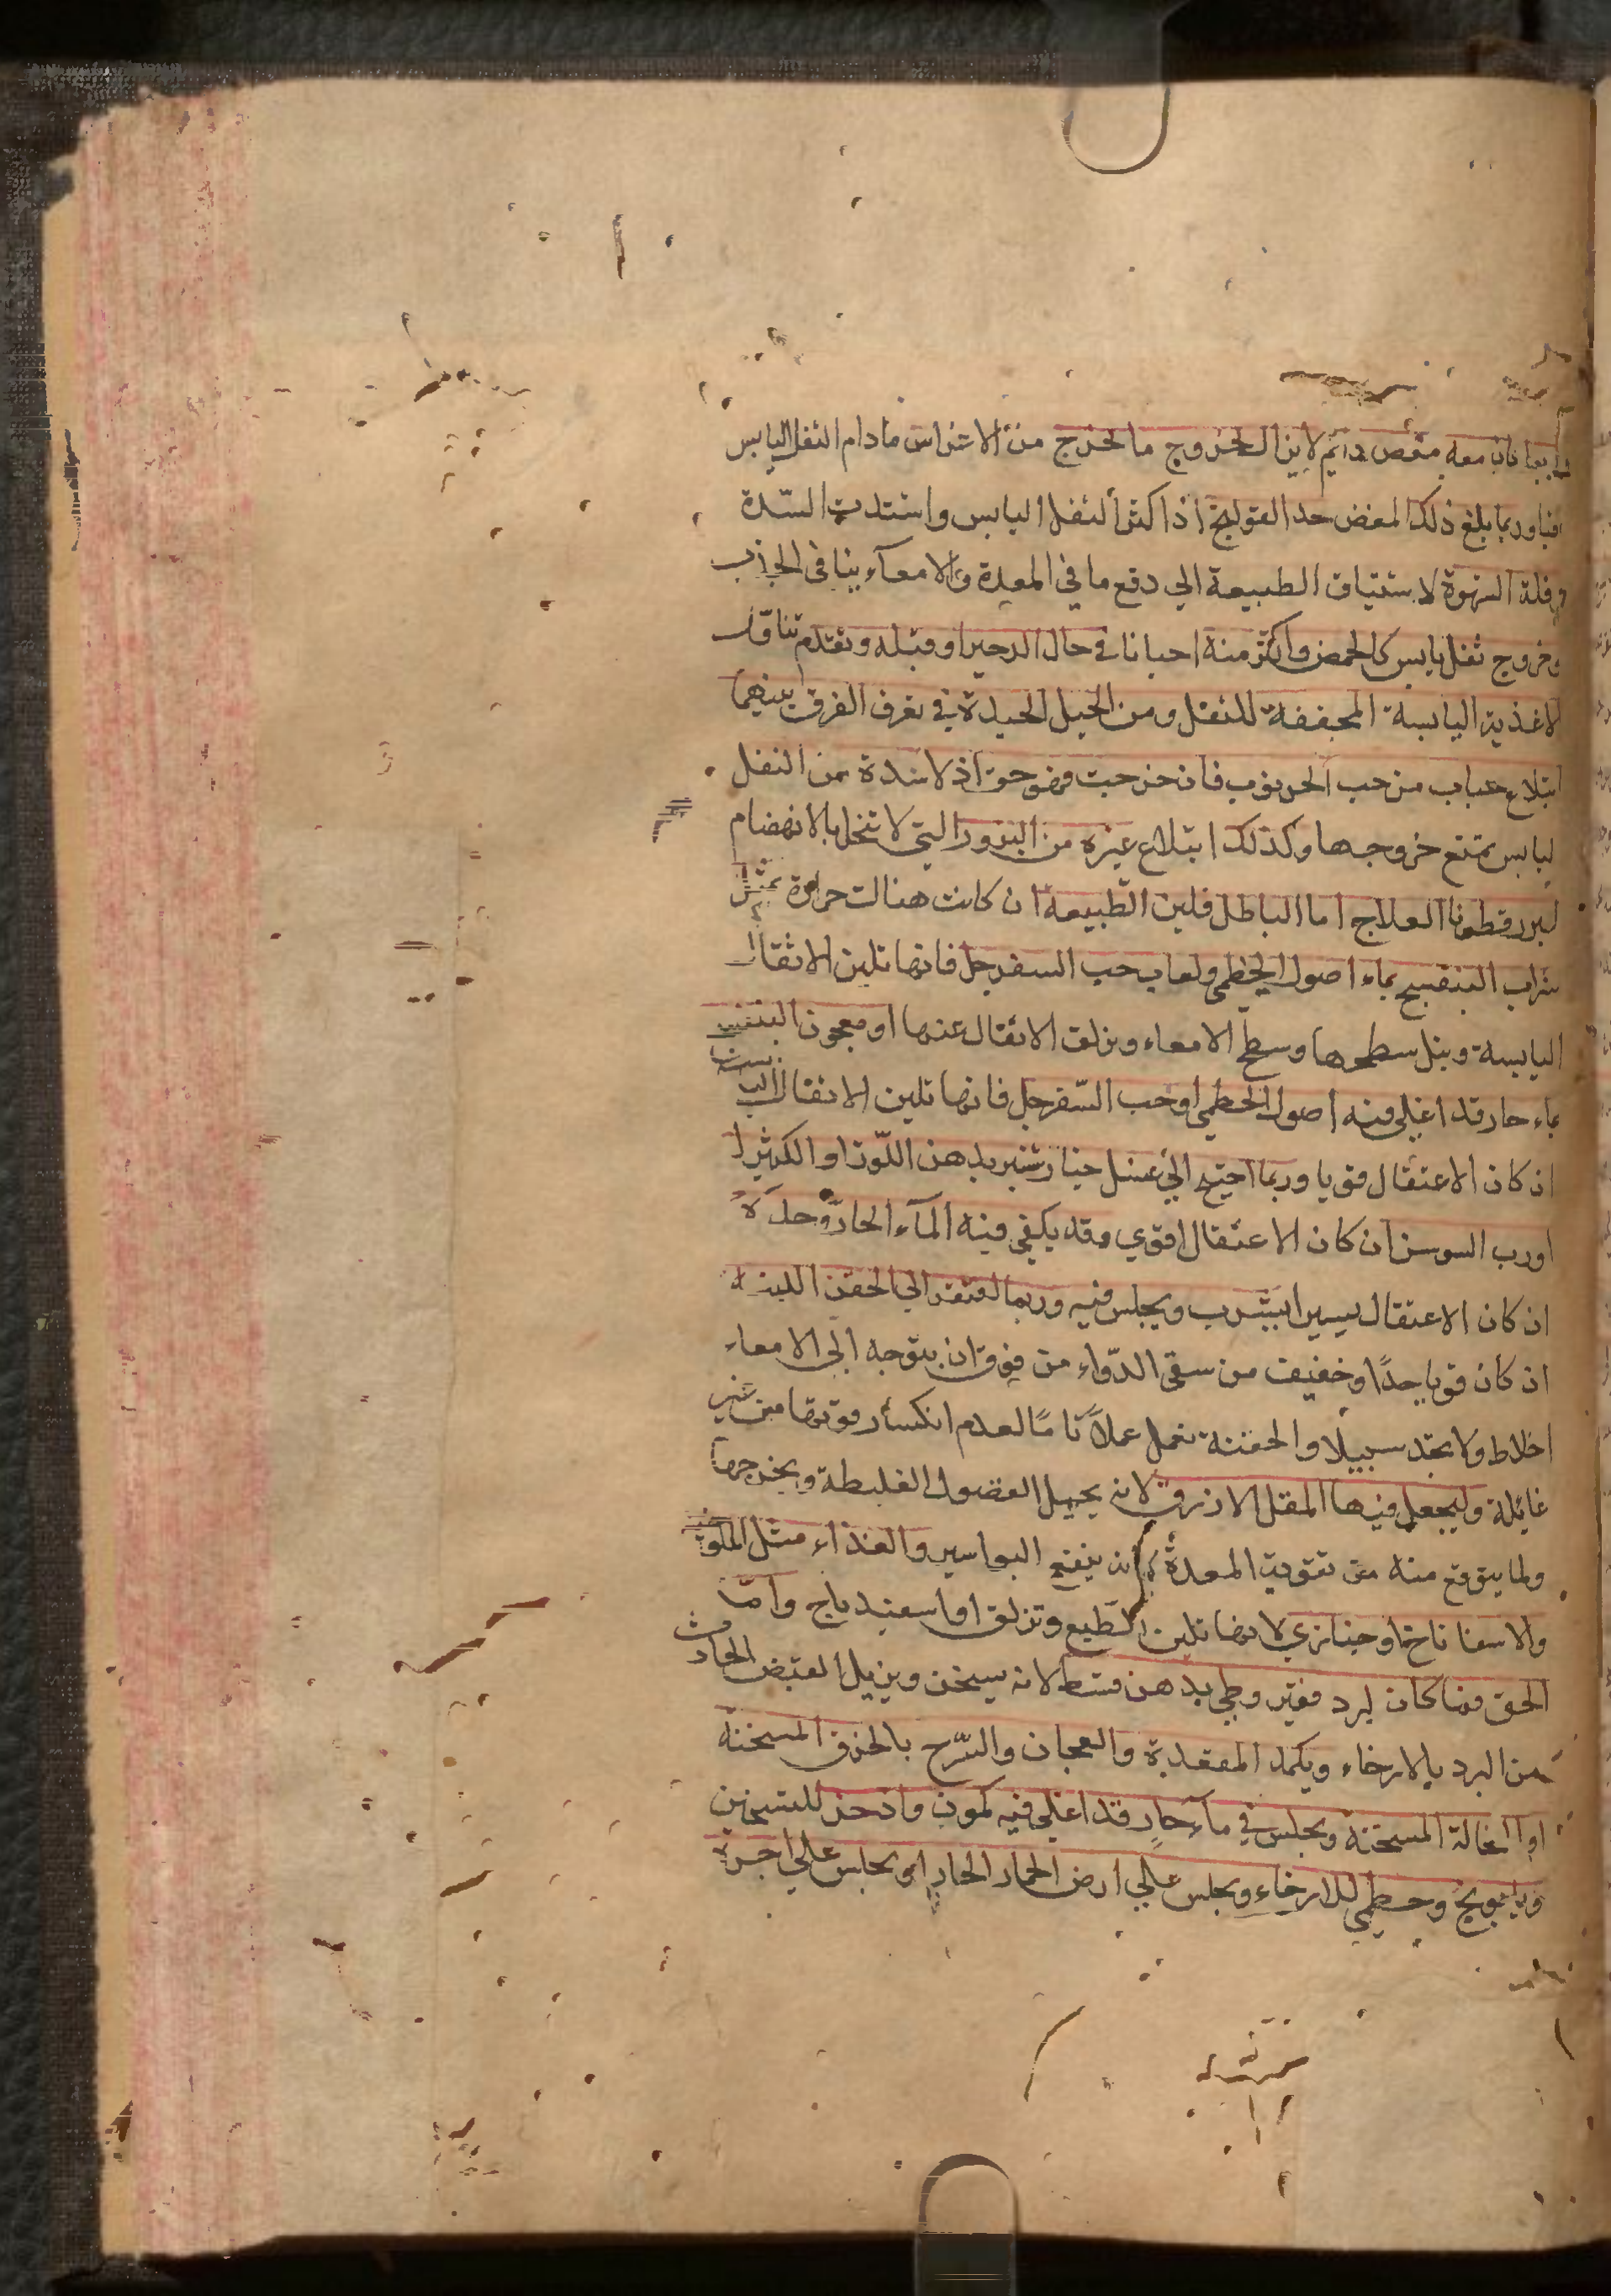 معه مغص دائم لاين الخروج ما لخرج من الاعراس مادام الثفل اليابس
وربما بلغ ذلك المغص حد القولنج اذا كثر الثفل اليابس واشتدت السّدة
وقلة الشهوة لاشتياق الطبيعة الي دفع ما في المعدة والامعآء ينافي الجذب
وخروج ثفل يابس كالحمص واكثر منه احيانا في حال الزحير او قبله وتقدم تناول
الاغذية اليابسة المجففة للثفل ومن الحيل الجيدة في تعرف الفرق بينهما
ابتلاع حبات من حب الخرنوب فان خرجت فهو حق اذ لا سدة من الثفل
اليابس تمنع خروجها وكذلك ابتلاع غيره من البزور التي لا تنحل بالانهضام
لبزر قطونا العلاج اما الباطل فلين الطّبيعة ان كانت هنالت حرارة بمثل
شراب البنفسج بماء اصول الخطمي ولعاب حب السفرجل فانها تلين الاثقال
اليابسة وتبل سطحها وسطح الامعاء ويزلق الاثقال عنها او معجون البنفسج
بماء حار قد اغلي فيه اصول الخطمي او حب السّفرجل فانها تلين الاثقال
ان كان الاعتقال قويا وربما احتيج الي عسل خيار شنبر بدهن اللّوز او الكثيرا
او رب السوسن ان كان الاعتقال اقوي وقد يكفي فيه المآء الحارّ وحده
ان كان الاعتقال يسيرا يشرب ويجلس فيه وربما افتقر الي الحقن اللينة
ان كان قويا جدًا وخفيف من سقي الدّواء من فوق ان يتوجه الي الامعاء
اخلاط ولا تجد سبيلا والحقنة تعمل عملاً تامًا لعدم انكسار قوتها من غير
غائلة وليجعل فيها المقل الازرق لانه يحيل الفضول الغليظة ويخرجها
ولما يتوقع منه من تقوية المعدة لانه ينفع البواسير والغذاء مثل الملوخية
والاسفاناخ او خبازي لانها تلين الطّبع وتزلق او اسفيدباج وامّا
الحق فما كان لبرد مفتر وطي بدهن قسط لانه يسخن ويزيل القبض الحادث
من البرد بالارخاء ويكمد المقعدة والعجان والسّرج بالخرق المسخنة
او النخالة المسخنة ويجلس في مآء حارٍ قد اغلي فيه كمون واذخر للتسخين
وبابونج وخطمي للارخاء ويجلس علي ارض الحمار الحار او يجلس علي اجرة